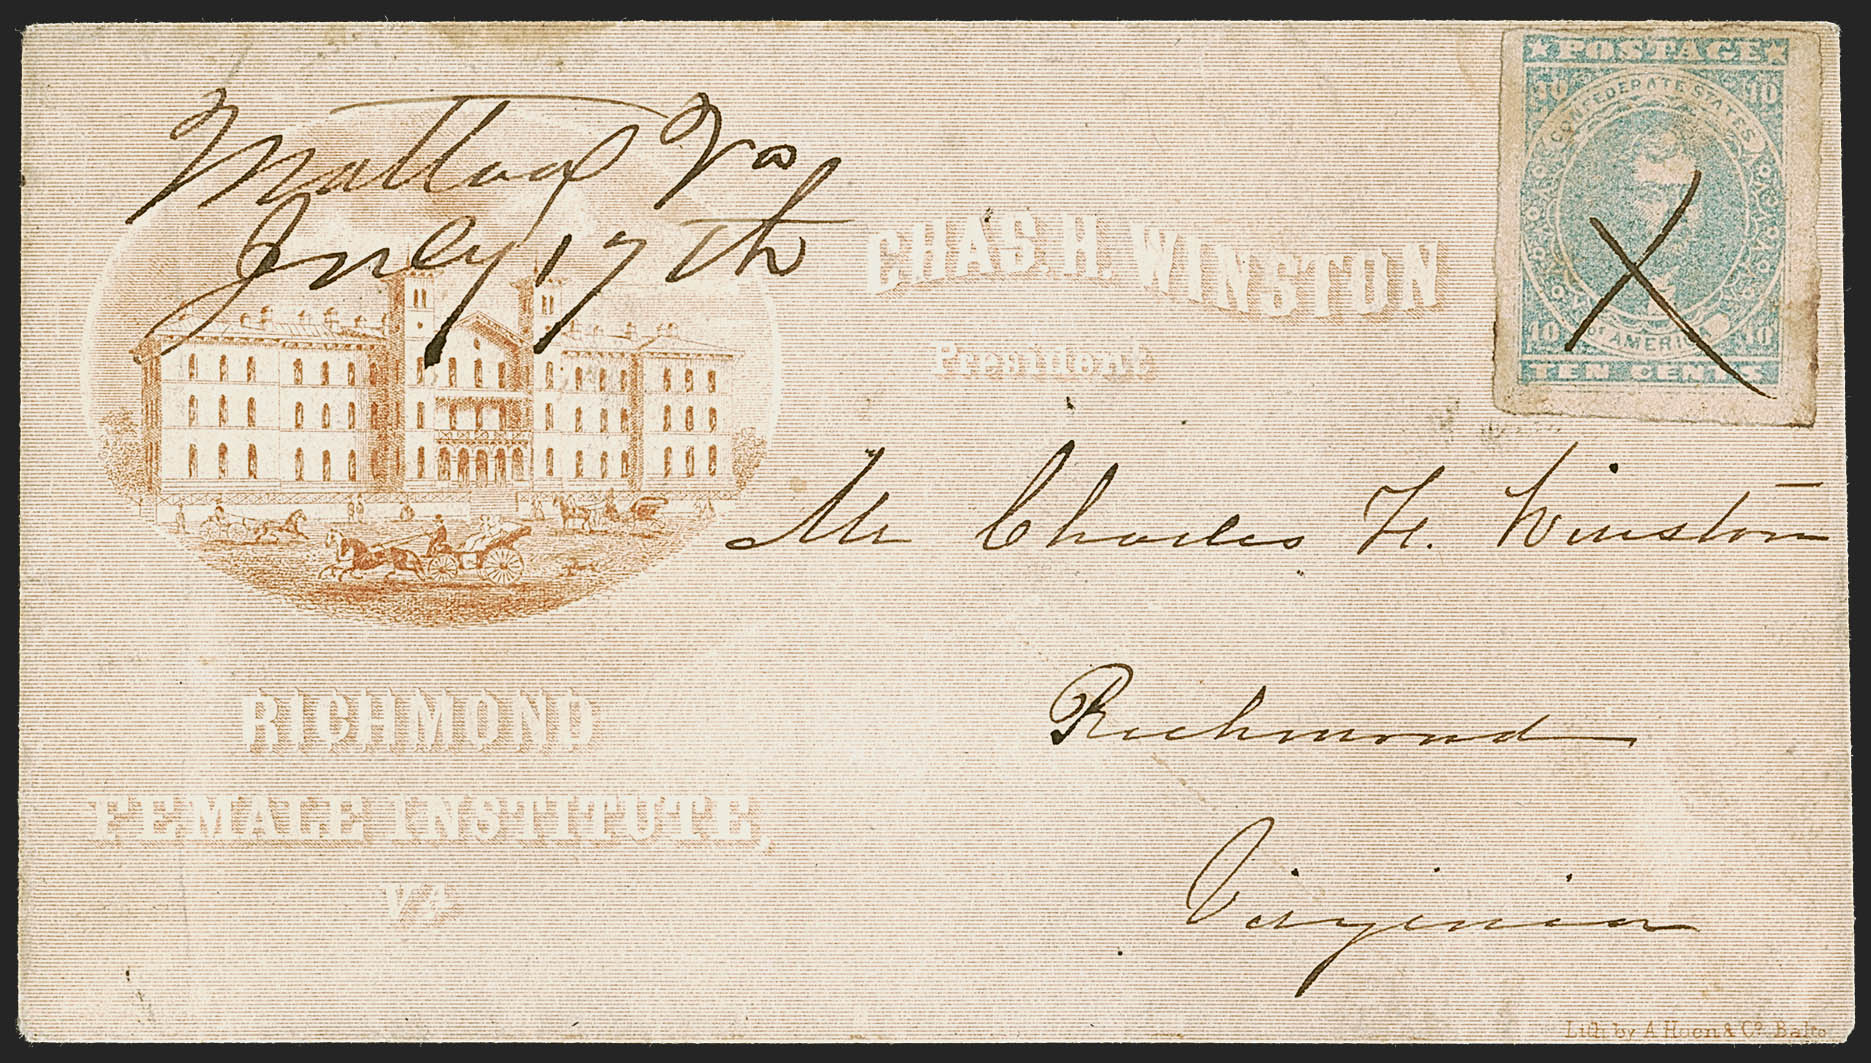 Mattoax Va
July 17th
CHAS. H. WINSTON
President
★ POSTAGE ★
10 10
CONFEDERATE STATES
OF AMERICA
10 10
TEN CENTS
Mr Charles H. Winston
Richmond
Virginia
RICHMOND
FEMALE INSTITUTE,
VA
Lith by A Hoen & Co. Balto